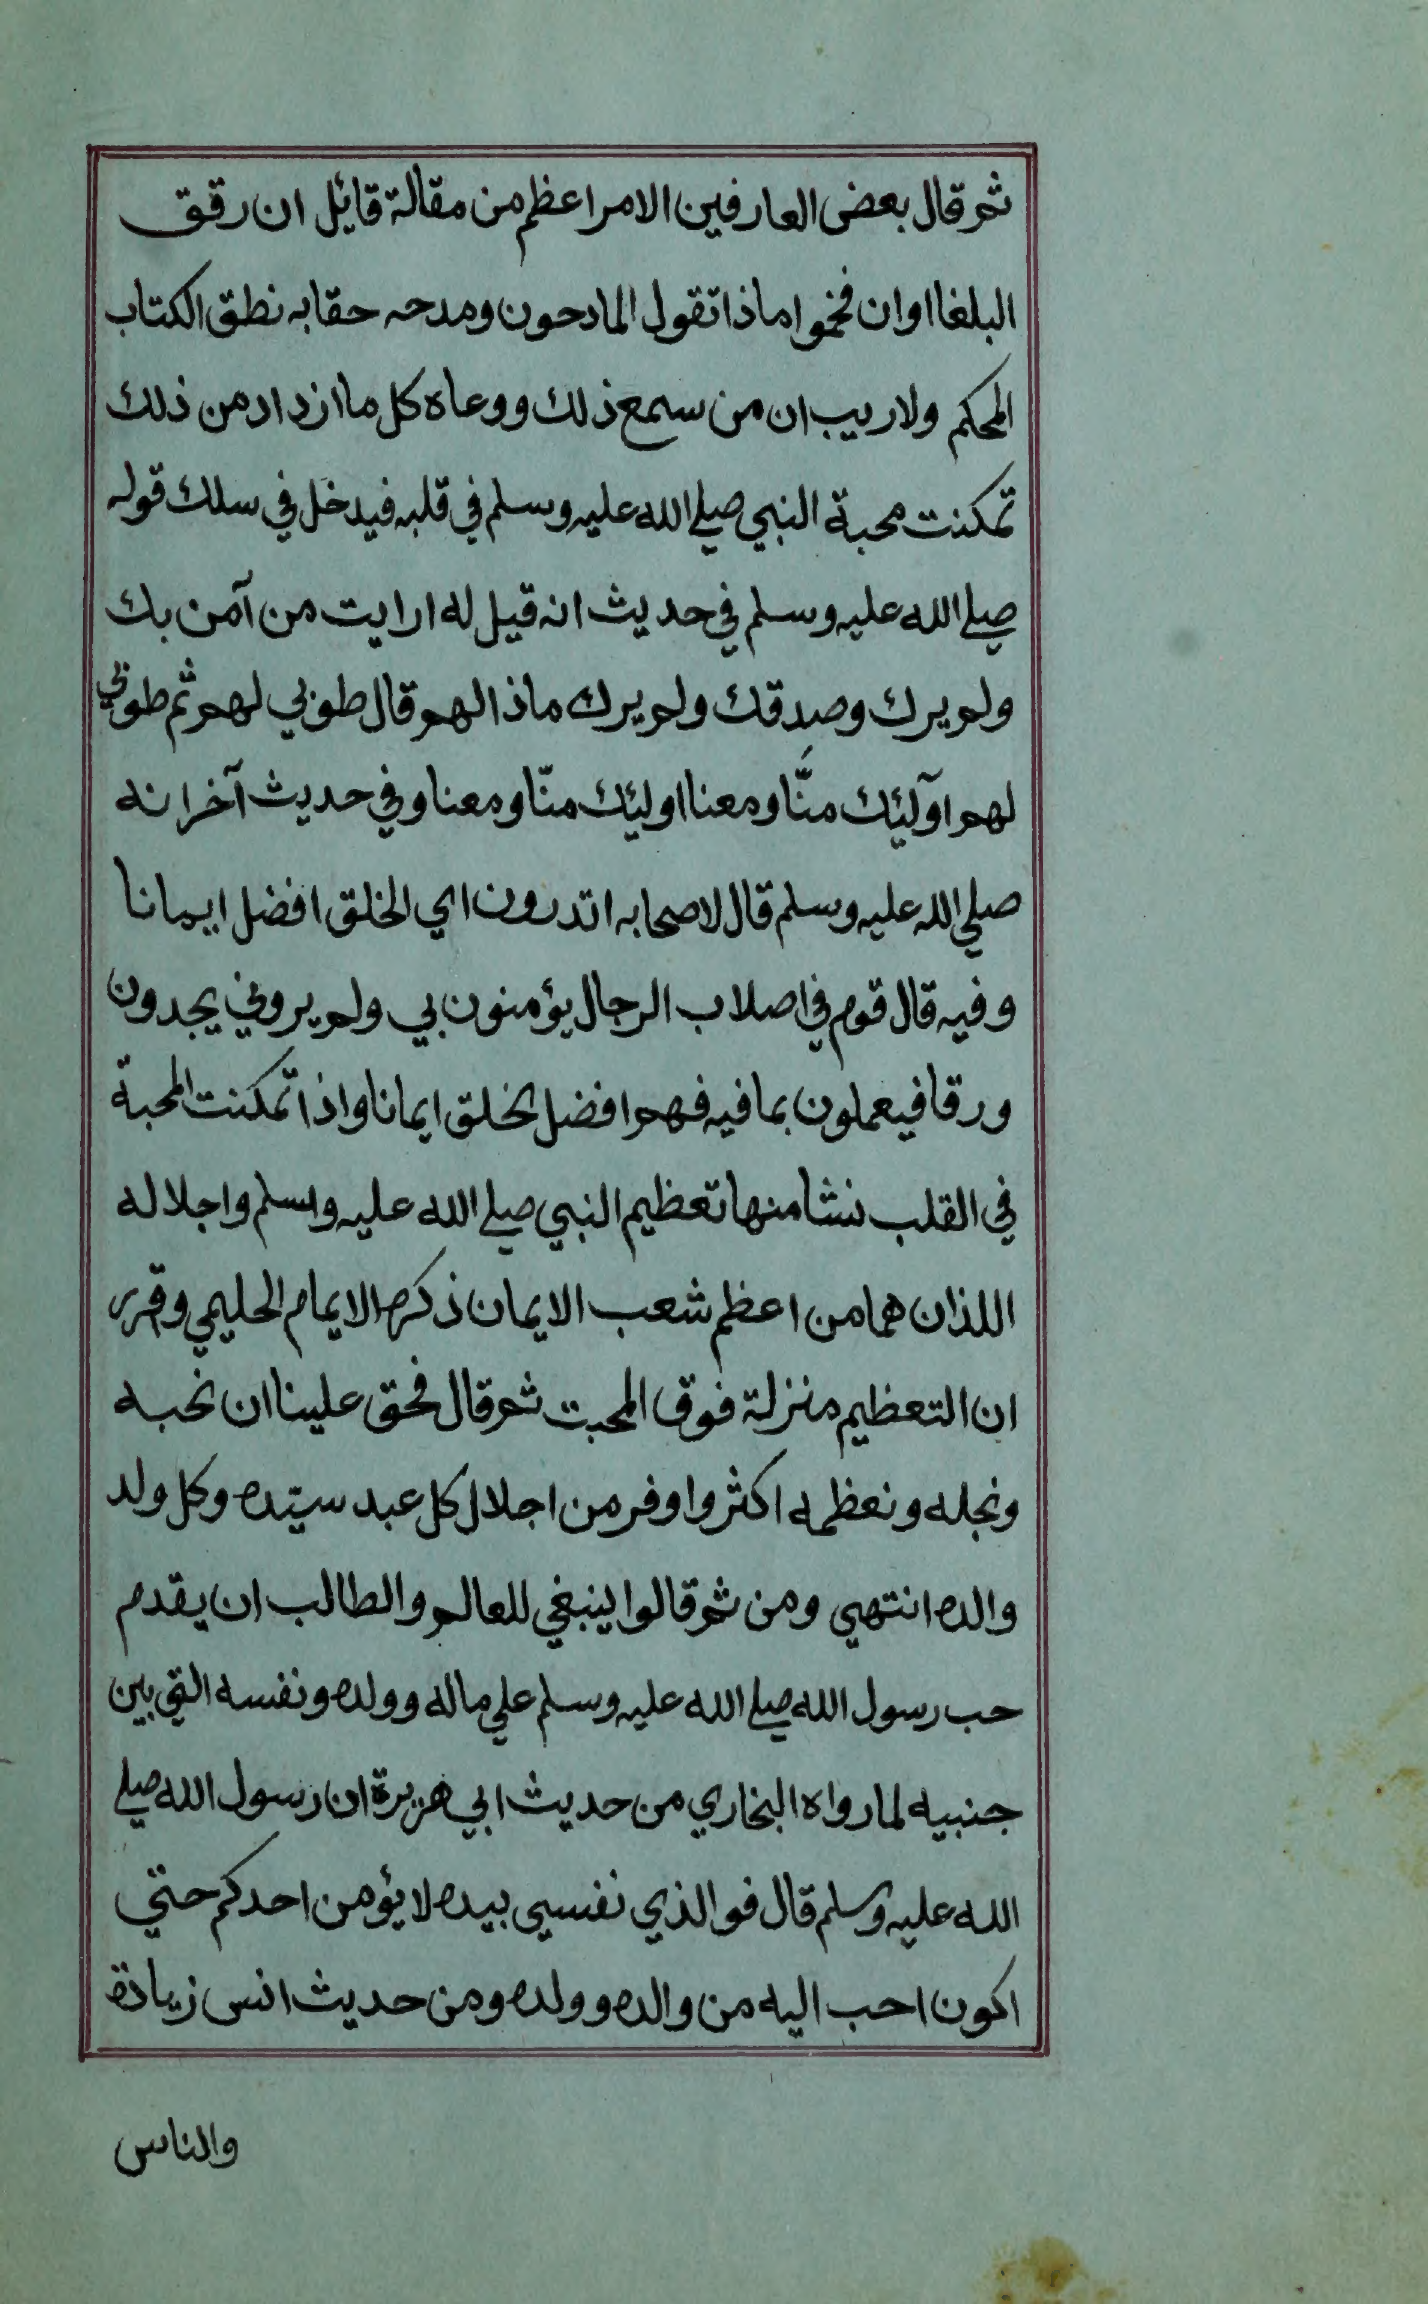 ثم قال بعض العارفين الامر اعظم من مقالة قايل ان رقق
البلغا او ان فخموا ماذا تقول المادحون ومدحه حقا به نطق الكتاب
المحكم ولا ريب ان من سمع ذلك ووعاه كل ما ازداد من ذلك
تمكنت محبة النبي صلي الله عليه وسلم في قلبه فيدخل في سلك قوله
صلي الله عليه وسلم في حديث انه قيل له ارايت من آمن بك
ولم يرك وصدقك ولم يرك ماذا لهم قال طوبي لهم ثم طوبي
لهم اولئك منّا ومعنا اوليئك منّا ومعنا وفي حديث آخر انه
صلي الله عليه وسلم قال لاصحابه اتدرون اي الخلق افضل ايمانا
وفيه قال قوم في اصلاب الرجال يؤمنون بي ولم يروني يجدون
ورقا فيعملون بما فيه فهم افضل الخلق ايمانا واذا تمكنت المحبة
في القلب نشا منها تعظيم النبي صلي الله عليه وسلم واجلاله
اللذان هما من اعظم شعب الايمان ذكره الايمام الحليمي وقرر
ان التعظيم منزلة فوق المحبت ثم قال فحق علينا ان نحبه
ونجله ونعظمه اكثر واوفر من اجلال كل عبد سيّده وكل ولد
والده انتهي ومن ثم قالوا ينبغي للعالم والطالب ان يقدم
حب رسول الله صلي الله عليه وسلم علي ماله وولده ونفسه التي بين
جنبيه لما رواه البخاري من حديث ابي هريرة ان رسول الله صلي
الله عليه وسلم قال فو الذي نفسي بيده لا يؤمن احدكم حتي
اكون احب اليه من والده وولده ومن حديث انس زيادة
والناس